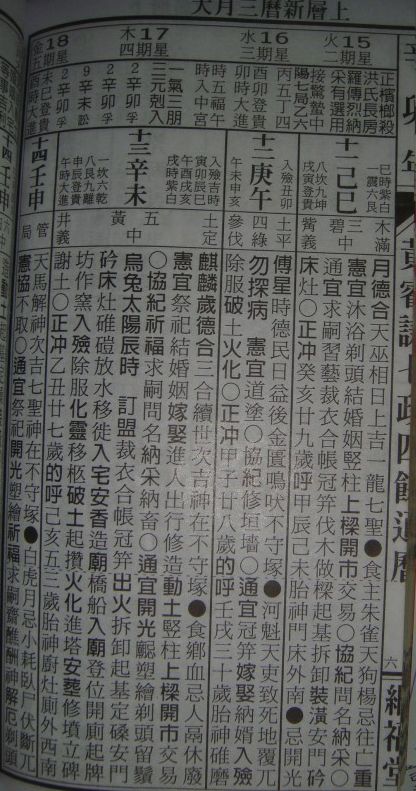 上層新曆三月大
辛卯年
黃睿謀七政四餘通曆
六
繼福堂
15 星期二 火
正檳榔殺
洪氏長房
羅傳烈納
采有選用
接驚蟄中
陽七局乙六
十一 己巳
巳時紫白
震六艮
八坎九坤
戌寅登貴
木滿
三碧中
觜義
月德合天巫相日上吉一龍七聖●食主朱雀天狗楊忌往亡重
憲宜沐浴剃頭結婚姻竪柱上樑開市交易○協紀問名納采○
通宜求嗣習藝裁衣合帳冠笄伐木做樑起基拆卸裝潢安門砛
床灶○正沖癸亥廿九歲呼甲辰己未胎神門床外南●忌開光
16 星期三 水
丙五丁四
酉卯登貴
十二 庚午
入殮丑卯
午未申亥
土平
四綠
參伐
傅星時德民日益後金匱鳴吠不守塚●河魁天吏致死地覆兀
勿探病 憲宜道塗○協紀修垣墻○通宜冠笄嫁娶納婿入殮
除服破土火化○正沖甲子廿八歲的呼壬戌三十歲胎神碓磨
17 星期四 木
一氣三朋
時五福午
時入中宮
三元剋入
2辛卯孚
十三 辛未
入殮吉時
寅卯辰巳
午酉戌亥
戌時紫白
土定
五黃中
井義
麒麟歲德合三合續世次吉神在不守塚●食鄉血忌人鬲休廢
憲宜祭祀結婚姻嫁娶進人出行修造動土竪柱上樑開市交易
○協紀祈福求嗣問名納采納畜○通宜開光塑繪剃頭留鬚
烏兔太陽辰時 訂盟裁衣合帳冠笄出火拆卸起基定磉安門
砛床灶碓磑放水移徙入宅安香造廟橋船入廟登位開廁起牌
坊作窯入殮除服化靈移柩破土起攢火化進塔安葬修墳立碑
謝土○正沖乙丑廿七歲的呼己亥五三歲胎神廚灶廁外西南
18 星期五 金
未巳登貴
酉時大進
2辛卯孚
9辛未訟
2辛卯孚
十四 壬申
一坎六乾
八艮九離
申辰登貴
午時大進
管局
天馬解神次吉七聖神在不守塚●白虎月忌小耗臥尸伏斷兀
憲協不取○通宜祭祀開光塑繪祈福求嗣齋醮酬神解厄剃頭